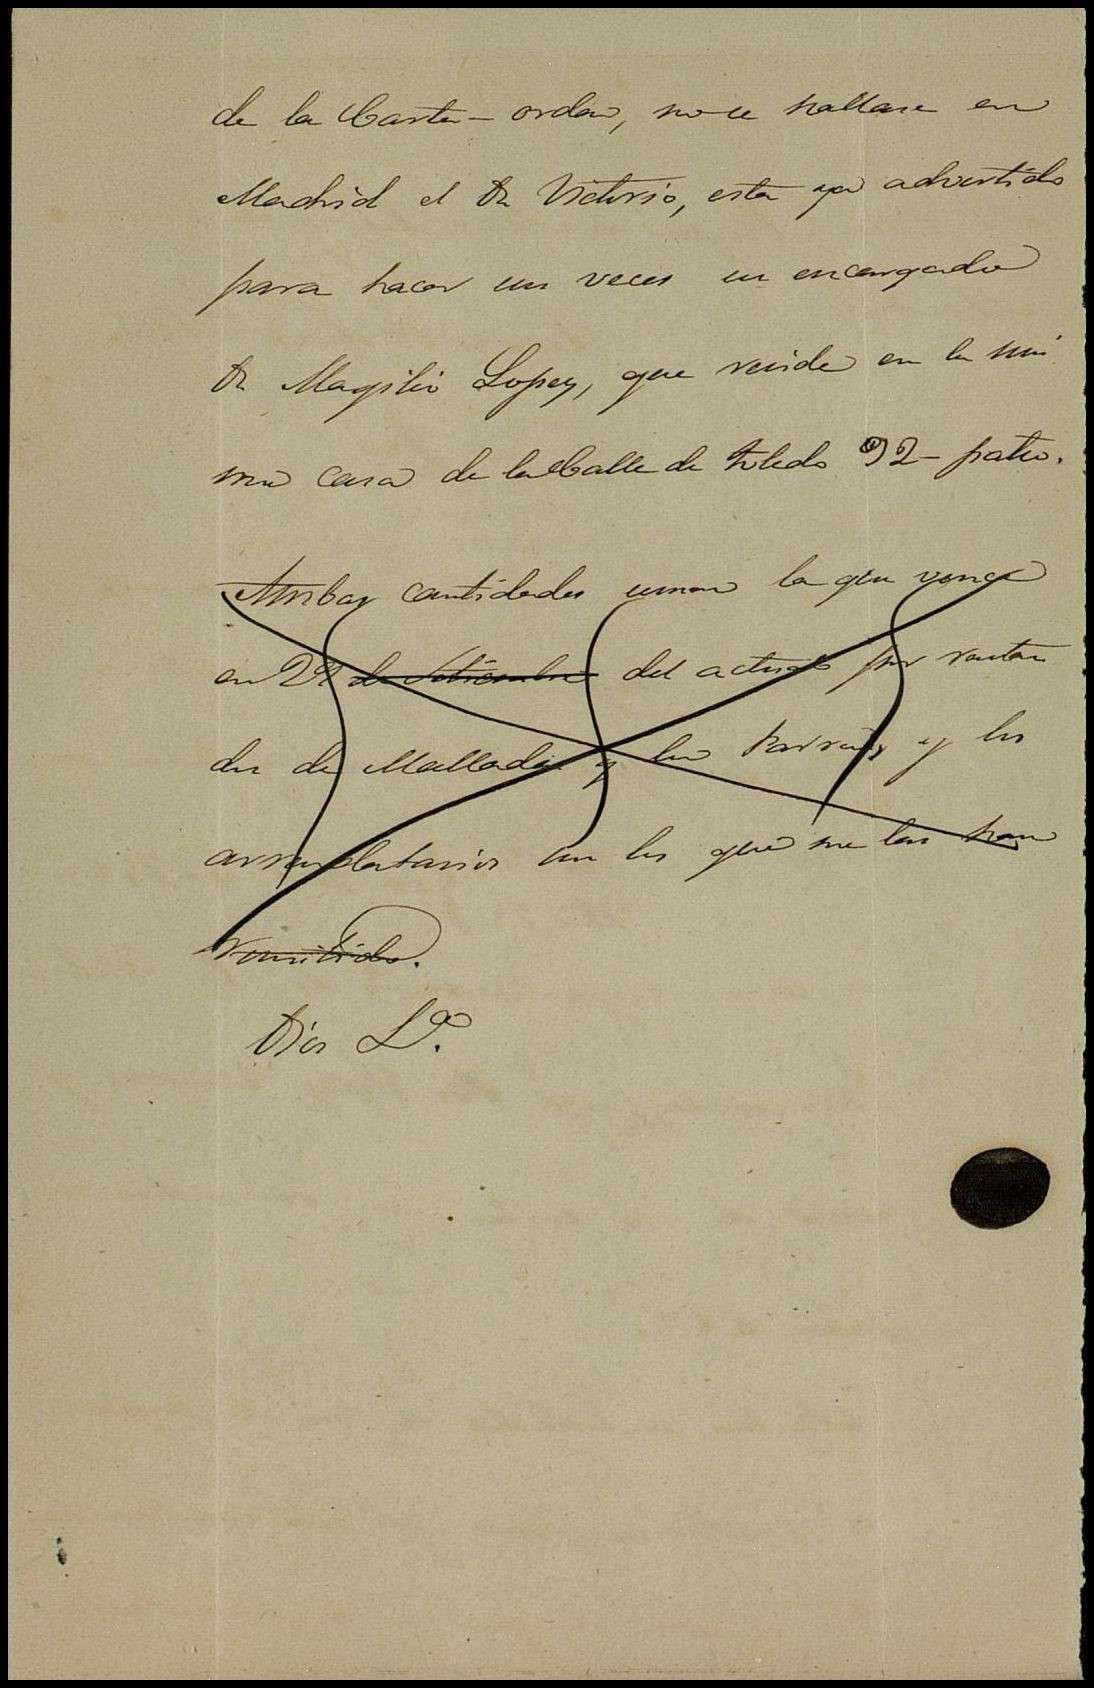 de la Carta-orden, no se hallare en
Madrid el Dn Victorio, esta ya advertido
para hacer sus veces su encargado
Dn Magilio Lopez, que reside en la mis
ma casa de la Calle de Toledo 92- patio.
Ambas cantidades suman la que vence
en 29 de Setiembre del actual por
de de Mallada y los y los
arrendatarios son los que me las han
remitido.
Dios L.